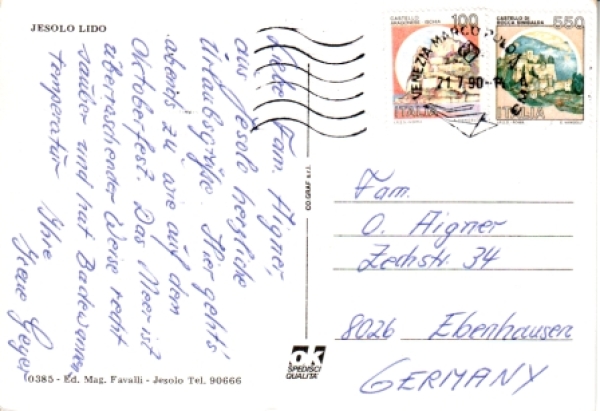 JESOLO LIDO
Liebe Fam. Aigner,
aus Jesolo herzliche
Urlaubsgrüße. Hier gehts
abends zu wie auf dem
Oktoberfest. Das Meer ist
überraschender Weise recht
sauber und hat Badewannen
temperatur. Ihre
Geyer
0385 - Ed. Mag. Favalli - Jesolo Tel. 90666
CO.GRAF s.r.l.
ok
SPEDISCI
QUALITA'
CASTELLO
ARAGONESE - ISCHIA
100
ITALIA
CASTELLO DI
ROCCA SINIBALDA
550
ITALIA
VENEZIA MARCO POLO
21.7.90
Fam.
O. Aigner
Zechstr. 34
8026 Ebenhausen
GERMANY